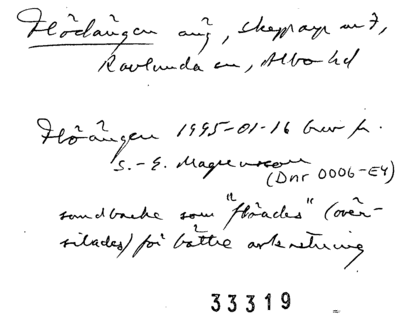 Flödängen äng, Skepparp nr 7,
Ravlunda sn, Albo hd
Flöängen 1995-01-16 brev fr.
S.-E. Magnusson
(Dnr 0006-E4)
sandbacke som "flöades" (över-
silades) för bättre avkastning
33319